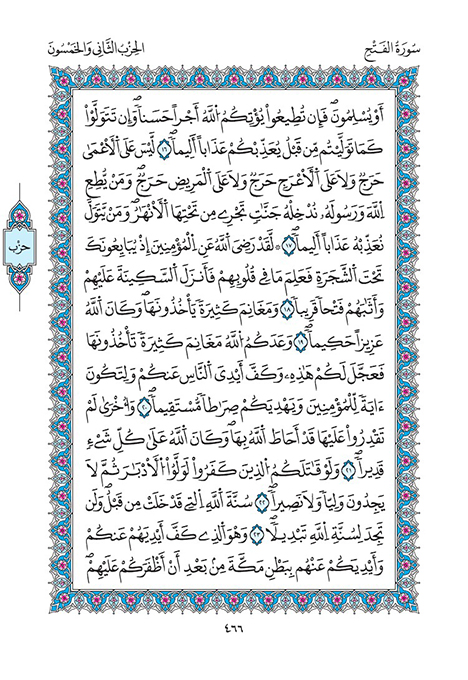 سُورَةُ الْفَتْحِ
الحِزْبُ الثَّانِي وَالْخَمْسُونَ
أَوْ يُسْلِمُونَ فَإِن تُطِيعُواْ يُؤْتِكُمُ اللَّهُ أَجْراً حَسَناً وَإِن تَتَوَلَّوْاْ
كَمَا تَوَلَّيْتُم مِّن قَبْلُ يُعَذِّبْكُمْ عَذَاباً أَلِيماً ١٦ لَّيْسَ عَلَى اَلْأَعْمَىٰ
حَرَجٌ وَلَا عَلَى اَلْأَعْرَجِ حَرَجٌ وَلَا عَلَى اَلْمَرِيضِ حَرَجٌ وَمَنْ يُّطِعِ
اِللَّهَ وَرَسُولَهُۥ نُدْخِلْهُ جَنَّٰتٍ تَجْرِے مِن تَحْتِهَا اَلْأَنْهَٰرُ وَمَنْ يَّتَوَلَّ
نُعَذِّبْهُ عَذَاباً أَلِيماً ١٧ ۞ لَّقَدْ رَضِيَ اَللَّهُ عَنِ اِلْمُؤْمِنِينَ إِذْ يُبَايِعُونَكَ
تَحْتَ اَلشَّجَرَةِ فَعَلِمَ مَا فِے قُلُوبِهِمْ فَأَنزَلَ اَلسَّكِينَةَ عَلَيْهِمْ
وَأَثَٰبَهُمْ فَتْحاً قَرِيباً ١٨ وَمَغَانِمَ كَثِيرَةً يَأْخُذُونَهَا وَكَانَ اَللَّهُ
عَزِيزاً حَكِيماً ١٩ وَعَدَكُمُ اُللَّهُ مَغَانِمَ كَثِيرَةً تَأْخُذُونَهَا
فَعَجَّلَ لَكُمْ هَٰذِهِۦ وَكَفَّ أَيْدِيَ اَلنَّاسِ عَنكُمْ وَلِتَكُونَ
ءَايَةً لِّلْمُؤْمِنِينَ وَيَهْدِيَكُمْ صِرَٰطاً مُّسْتَقِيماً ٢٠ وَأُخْرَىٰ لَمْ
تَقْدِرُواْ عَلَيْهَا قَدْ أَحَاطَ اَللَّهُ بِهَا وَكَانَ اَللَّهُ عَلَىٰ كُلِّ شَےْءٍ
قَدِيراً ٢١ وَلَوْ قَٰتَلَكُمُ اُلذِينَ كَفَرُواْ لَوَلَّوُاْ اُلْأَدْبَٰرَ ثُمَّ لَا
يَجِدُونَ وَلِيّاً وَلَا نَصِيراً ٢٢ سُنَّةَ اَللَّهِ اِلتِے قَدْ خَلَتْ مِن قَبْلُ وَلَن
تَجِدَ لِسُنَّةِ اِللَّهِ تَبْدِيلاً ٢٣ وَهُوَ اَلذِے كَفَّ أَيْدِيَهُمْ عَنكُمْ
وَأَيْدِيَكُمْ عَنْهُم بِبَطْنِ مَكَّةَ مِن بَعْدِ أَنْ أَظْفَرَكُمْ عَلَيْهِمْ
حزب
٤٦٦